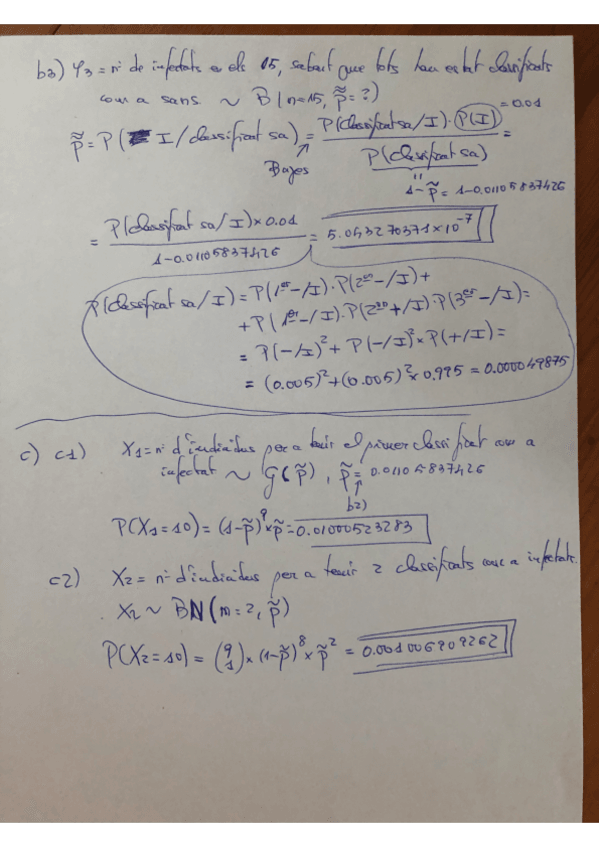 b3) Y₃ = nº de infectats en els 15, sabent que tots han estat classificats
com a sans ~ B(n=15, p̃=?)
p̃ = P(I/classificat sa) = P(classificat sa/I)·P(I) / P(classificat sa) =
= 0.01
Bayes
1-p̃ = 1-0.01105837426
= P(classificat sa/I)×0.01 / 1-0.01105837426 = 5.043270371×10⁻⁷
P(classificat sa/I) = P(1er -/I)·P(2on -/I) +
+ P(1er -/I)·P(2on +/I)·P(3er -/I) =
= P(-/I)² + P(-/I)² × P(+/I) =
= (0.005)² + (0.005)² × 0.995 = 0.000049875
c) c1) X₁ = nº d'individus per a tenir el primer classificat com a
infectat ~ G(p̃), p̃ = 0.01105837426
b2)
P(X₁=10) = (1-p̃)⁹×p̃ = 0.01000523283
c2) X₂ = nº d'individus per a tenir 2 classificats com a infectats.
X₂ ~ BN(m=2, p̃)
P(X₂=10) = (9 1) × (1-p̃)⁸ × p̃² = 0.001006909262